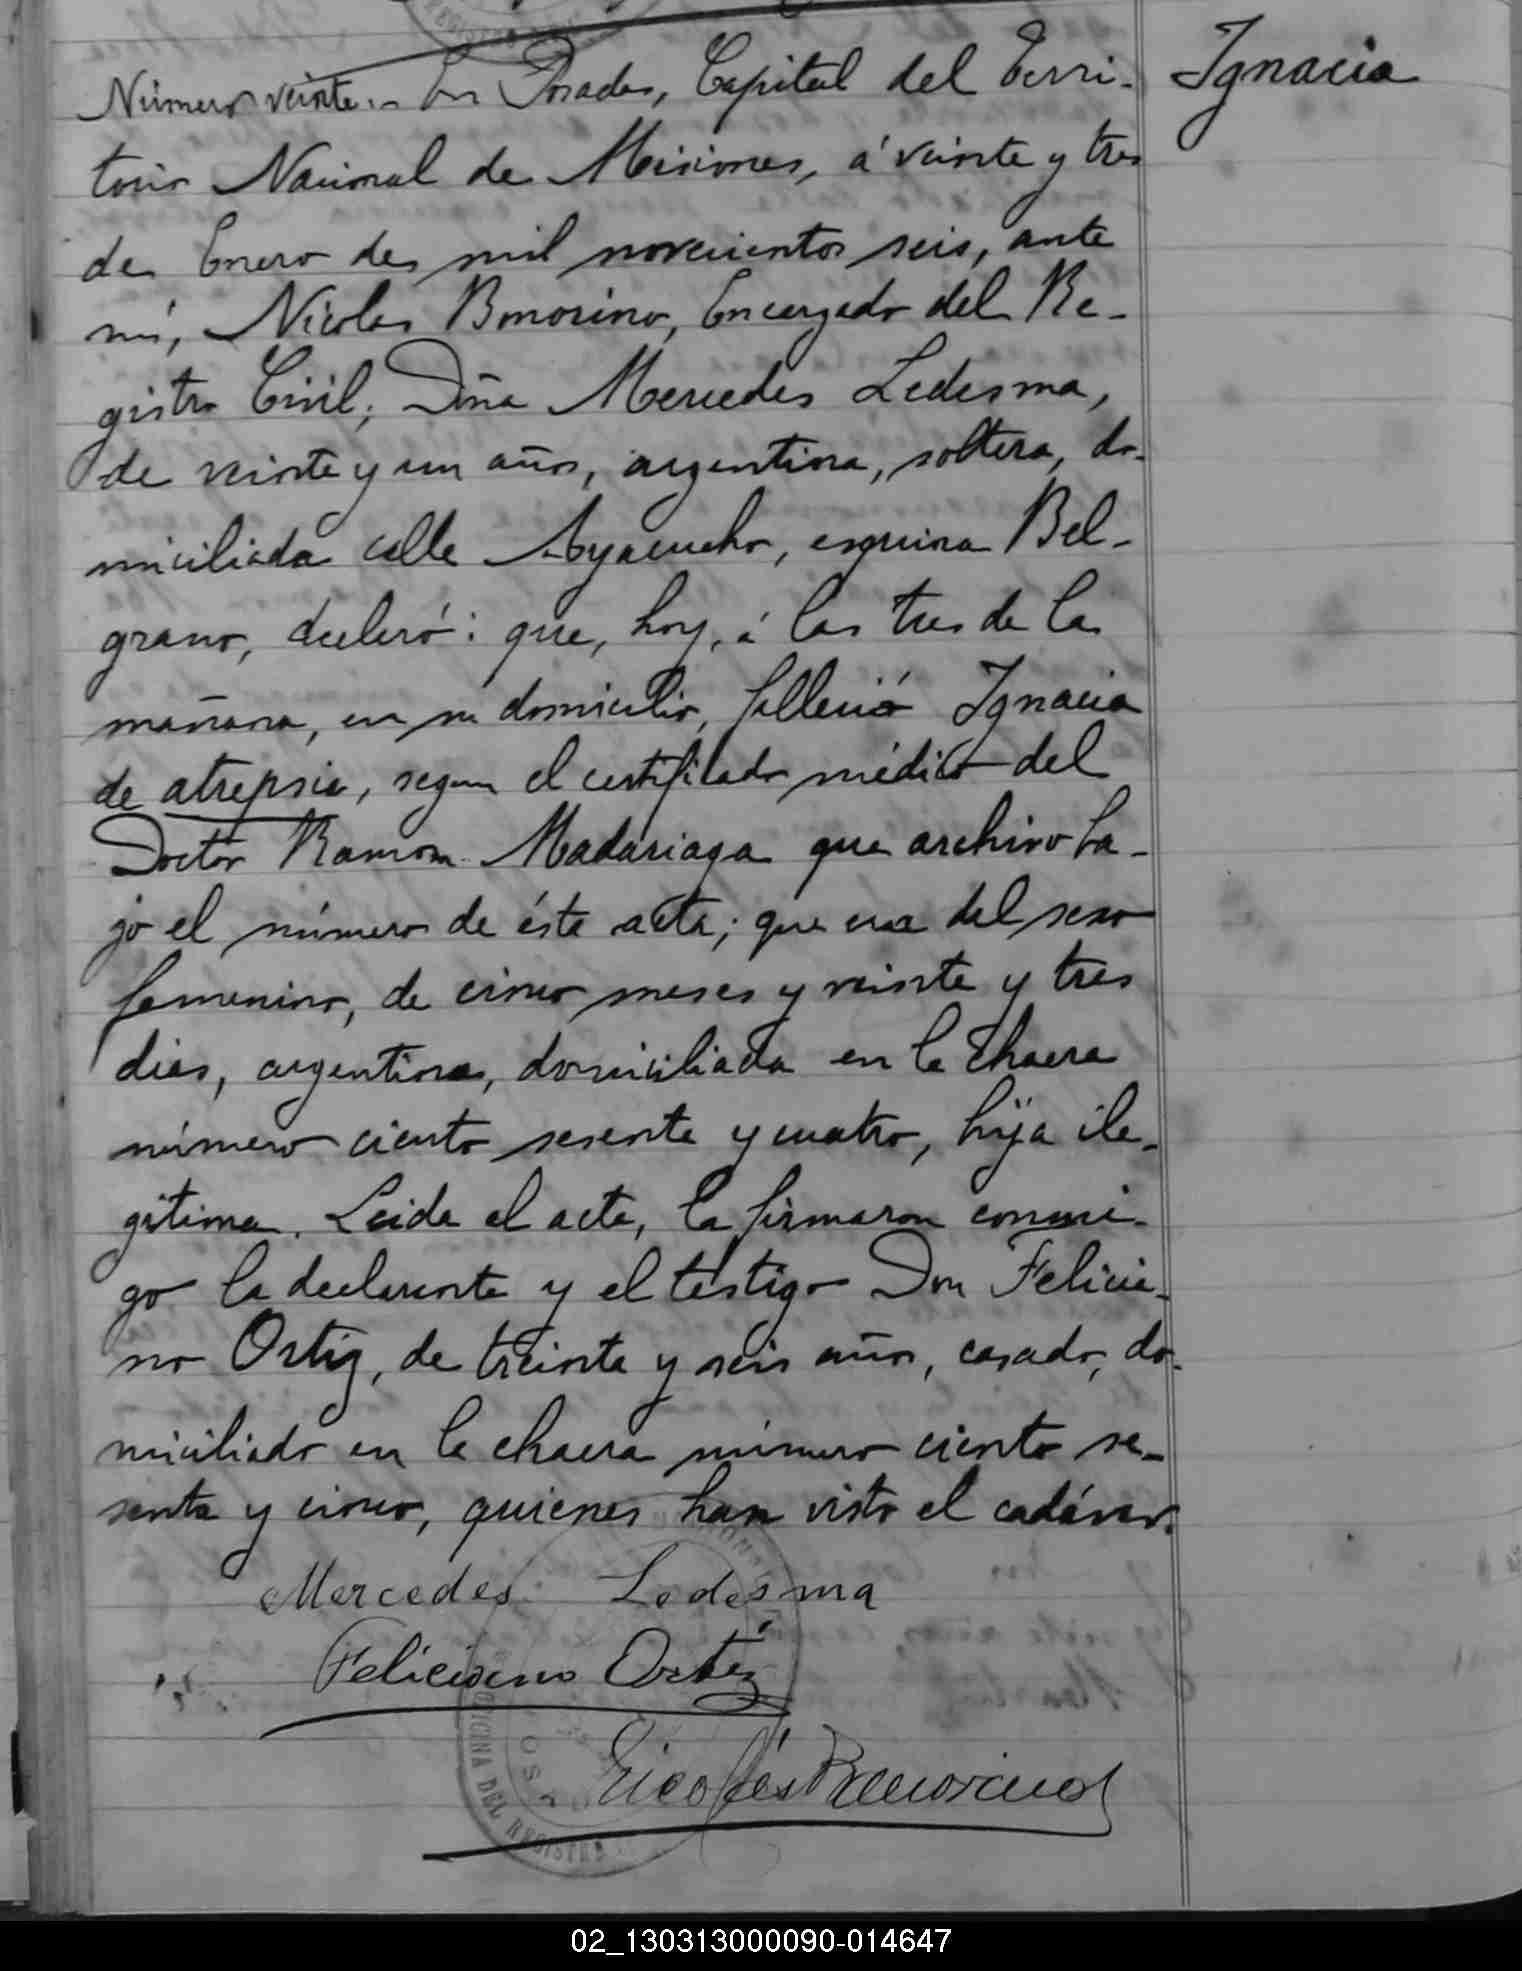 Ignacia
Número veinte.- En Posadas, Capital del Terri-
torio Nacional de Misiones, á veinte y tres
de Enero de mil novecientos seis, ante
mí, Nicolas Bonorino, Encargado del Re-
gistro Civil; Doña Mercedes Ledesma,
de veinte y un años, argentina, soltera, do-
miciliada calle Ayacucho, esquina Bel-
grano, declaró: que, hoy, á las tres de la
mañana, en su domicilio, falleció Ignacia
de atrepsia, segun el certificado médico del
Doctor Ramon Madariaga que archivo ba-
jo el número de ésta acta; que era del sexo
femenino, de cinco meses y veinte y tres
dias, argentina, domiciliada en la chacra
número ciento sesenta y cuatro, hija ile-
gitima. Leida el acta, la firmaron conmi-
go la declarante y el testigo Don Felicia-
no Ortiz, de treinta y seis años, casado, do-
miciliado en la chacra número ciento se-
senta y cinco, quienes han visto el cadáver.
Mercedes Ledesma
Feliciano Ortiz
Nicolás Bonorino
OFICINA DEL REGISTRO
02_130313000090-014647